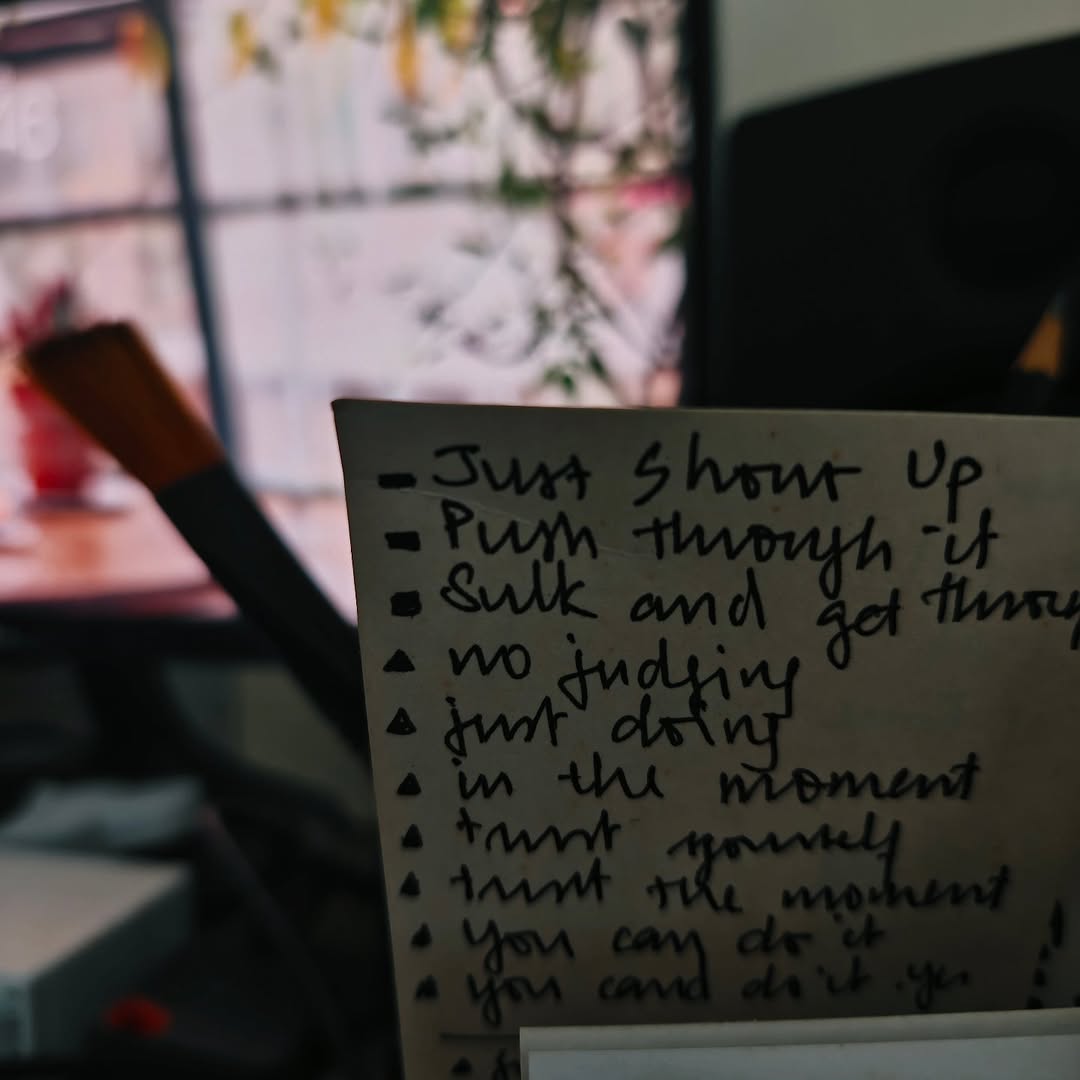 46
- Just Show Up
- Push through it
- Sulk and get throug
▲ no judging
▲ just doing
▲ in the moment
▲ trust yourself
▲ trust the moment
▲ you can do it
▲ you cand do it